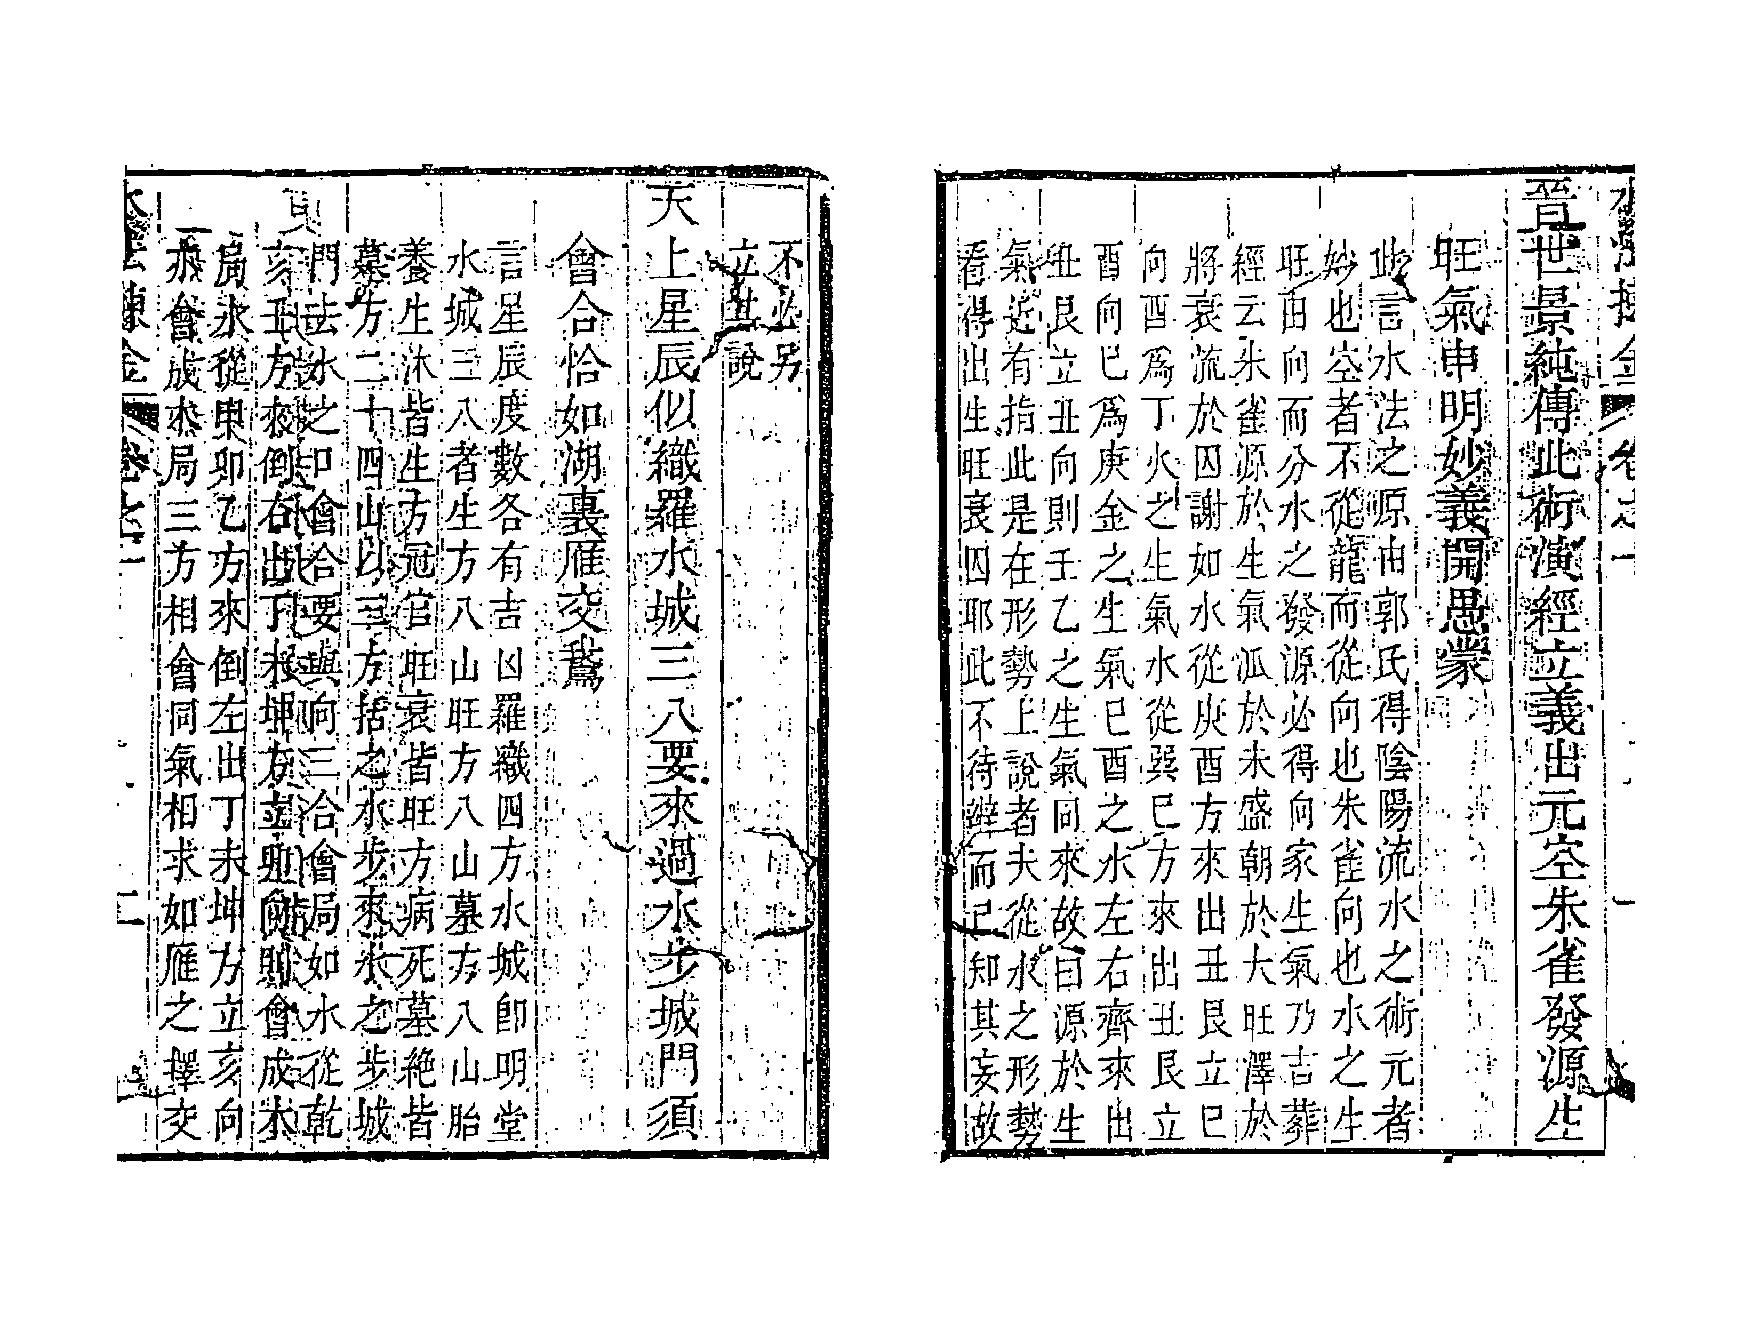 晉世景純傳此術演經立義出元空朱雀發源生
旺氣申明妙義開愚蒙
此言水法之源由郭氏得陰陽流水之術元者
妙也空者不從龍而從向也朱雀向也水之生
旺由向而分水之發源必得向家生氣乃吉葬
經云朱雀源於生氣派於未盛朝於大旺澤於
將衰流於囚謝如水從庚酉方來出丑艮立巳
向酉為丁火之生氣水從巽巳方來出丑艮立
酉向巳為庚金之生氣巳酉之水左右齊來出
丑艮立丑向則壬乙之生氣同來故曰源於生
氣近有指此是在形勢上說者夫從水之形勢
看得出生旺衰囚耶此不待辯而已知其妄故
不必另
立其說
天上星辰似織羅水城三八要來過水步城門須
會合恰如湖裏雁交鵞
言星辰度數各有吉凶羅織四方水城即明堂
水城三八者生方八山旺方八山墓方八山胎
養生沐皆生方冠官旺衰皆旺方病死墓絕皆
墓方二十四山以三方括之水步來水之步城
門法水之口會合要與向三合會局如水從乾
亥壬方來倒右出丁未坤方立卯向則會成木
局水從甲卯乙方來倒左出丁未坤方立亥向
亦會成木局三方相會同氣相求如雁之擇交
卷之一
二